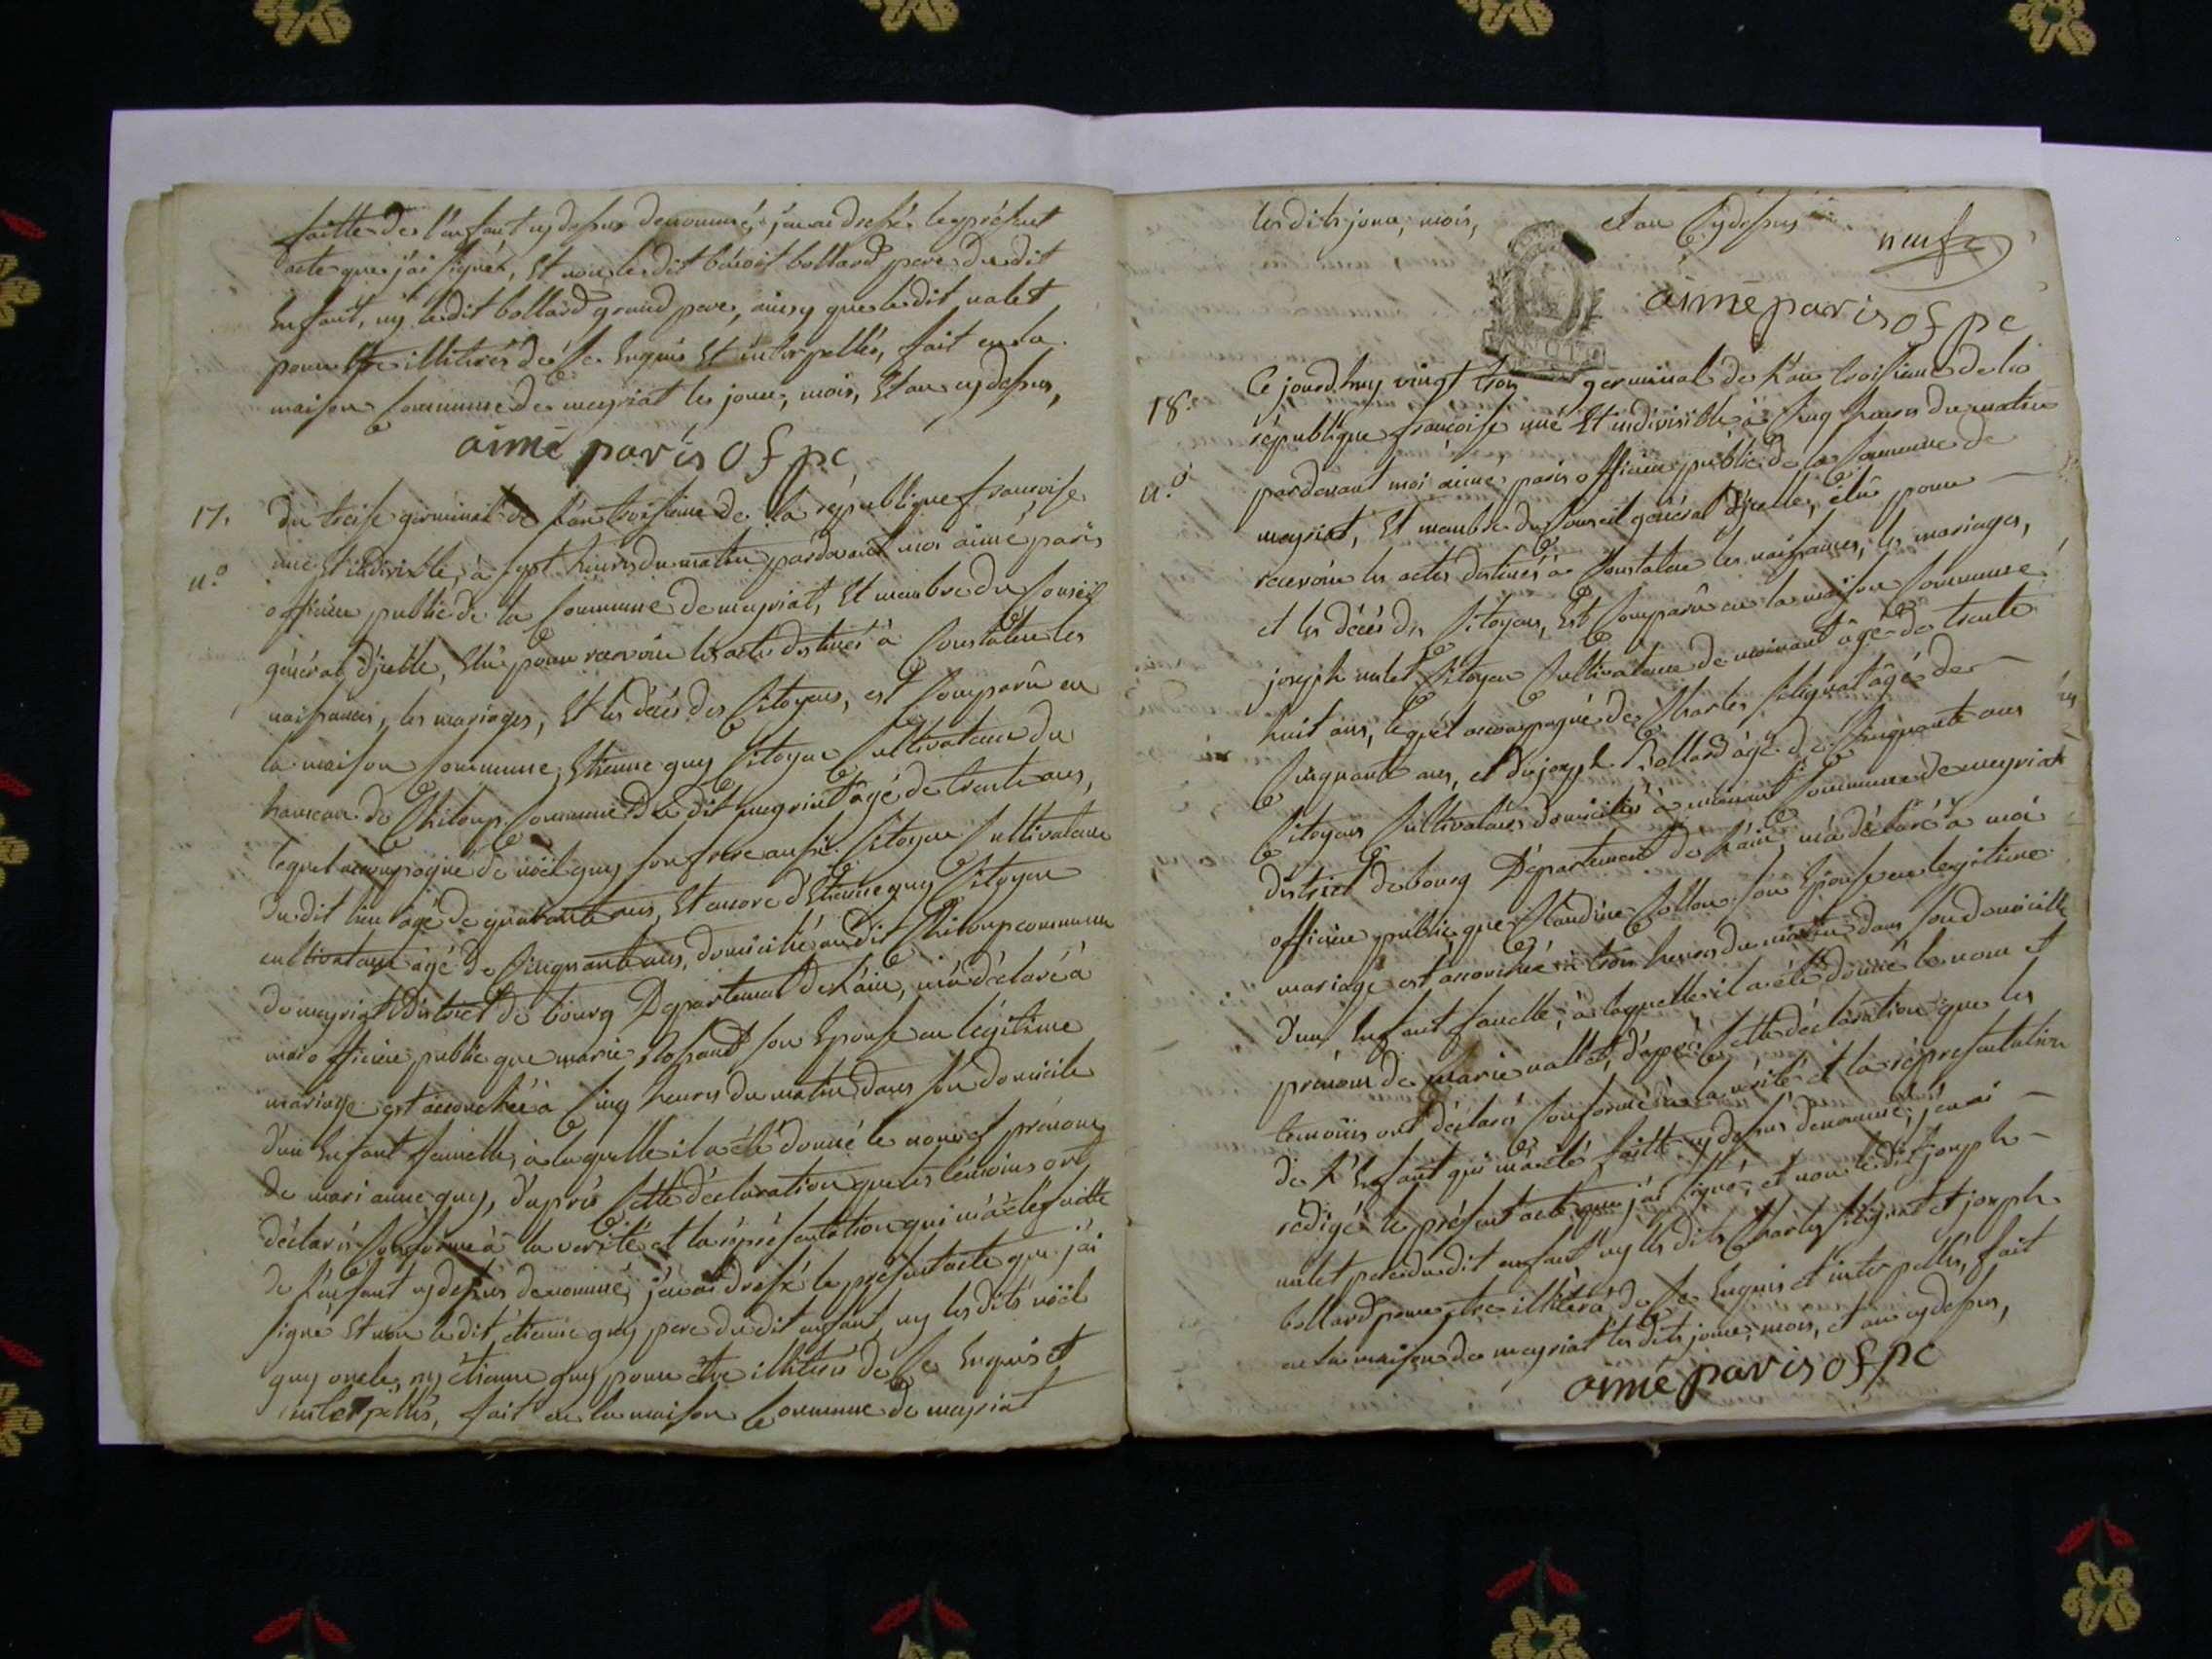 faitte de l'enfant cydessus denommé, j'en ai dressé le présent
acte que j'ai signés, Et non le dit benoit bollard pere du dit
Enfant, ny ledit bollard grand pere, ainsy que le dit nalet
pour Etre illiterés de ce Enquis Et interpellés, fait en la
maison Commune de meyriat les jour, mois, Et an cydessus,
aimé paris of pc
17. du treise germinal de l'an troisieme de la république francoise
n.o une Et indivisible, à sept heures du matin pardevant moi aimé paris
officier public de la Commune de meyriat, Et membre du Conseil
général d'jcelle, Elu pour recevoir les actes destinés à Constater les
naissances, les mariages, Et les décés des Citoyens, est Comparû en
la maison Commune, Etienne guy Citoyen Cultivateur du
hameau de Chiloup Commune du dit meyriat âgé de trente ans,
lequel accompagné de noël guy son frere aussi Citoyen Cultivateur
du dit lieu âgé de quarante ans, Et encore d'Etienne guy Citoyen
cultivateur âgé de Cinquante ans, domicilié au dit Chiloup commune
de meyriat District de bourg Departement de L'ain, m'a déclaré à
moi officier public que marie son Epouse en légitime
mariage est accouchée à Cinq heures du matin dans son domicile
d'un Enfant femelle, à laquelle il a été donné le nom et prénom
de mari anne guy, d'après Cette déclaration que les témoins ont
déclarés Conforme à la verité et la réprésentation qui m'a été faitte
de l'enfant cydessus denommé, j'en ai dressé le présent acte que j'ai
signé Et non le dit étienne guy pere du dit enfant, ny les dits noël
guy oncle, ny étienne guy pour être illiterés de Ce Enquis et
interpellés, fait en la maison Commune de meyriat
les dits jour, mois, et an Cydessus
neuf
aimé paris of pc
18. Ce jourd'huy vingt trois germinal de l'an troisieme de la
république francoise une Et indivisible à Cinq heures du matin
n.o pardevant moi aimé paris officier public de la Commune de
meyriat, Et membre du Conseil général d'jcelle, élû pour
recevoir les actes destinés à Constater les naissances, les mariages,
et les décés des Citoyens, Est Comparû en la maison Commune
joseph nalet Citoyen Cultivateur de âgé de trente
huit ans, lequel accompagné de Charles Salignat âgé de
Cinquante ans, et de joseph Bollard âgé de Cinquante ans
Citoyens Cultivateurs domiciliés à Commune de meyriat
district de bourg Département de L'ain, m'a déclaré à moi
officier public que Claudine Collon son Epouse en legitime
mariage est accouchée à trois heures du matin dans son domicille
d'un Enfant femelle, à laquelle il a été donné le nom et
prénom de marie nallet, d'après Cette déclaration que les
temoins ont déclarés Conforme à la verité et la réprésentation
de L'Enfant qui m'a été faitte cydessus denommé, j'en ai
rédigé le présent acte que j'ai signé, et non le dit joseph
nalet pere du dit enfant, ny les dits Charles Salignat et joseph
bollard pour etre illiterá de Ce Enquis et interpellés, fait
en la maison de meyriat les dits jour, mois, et an cydessus,
aimé paris of pc